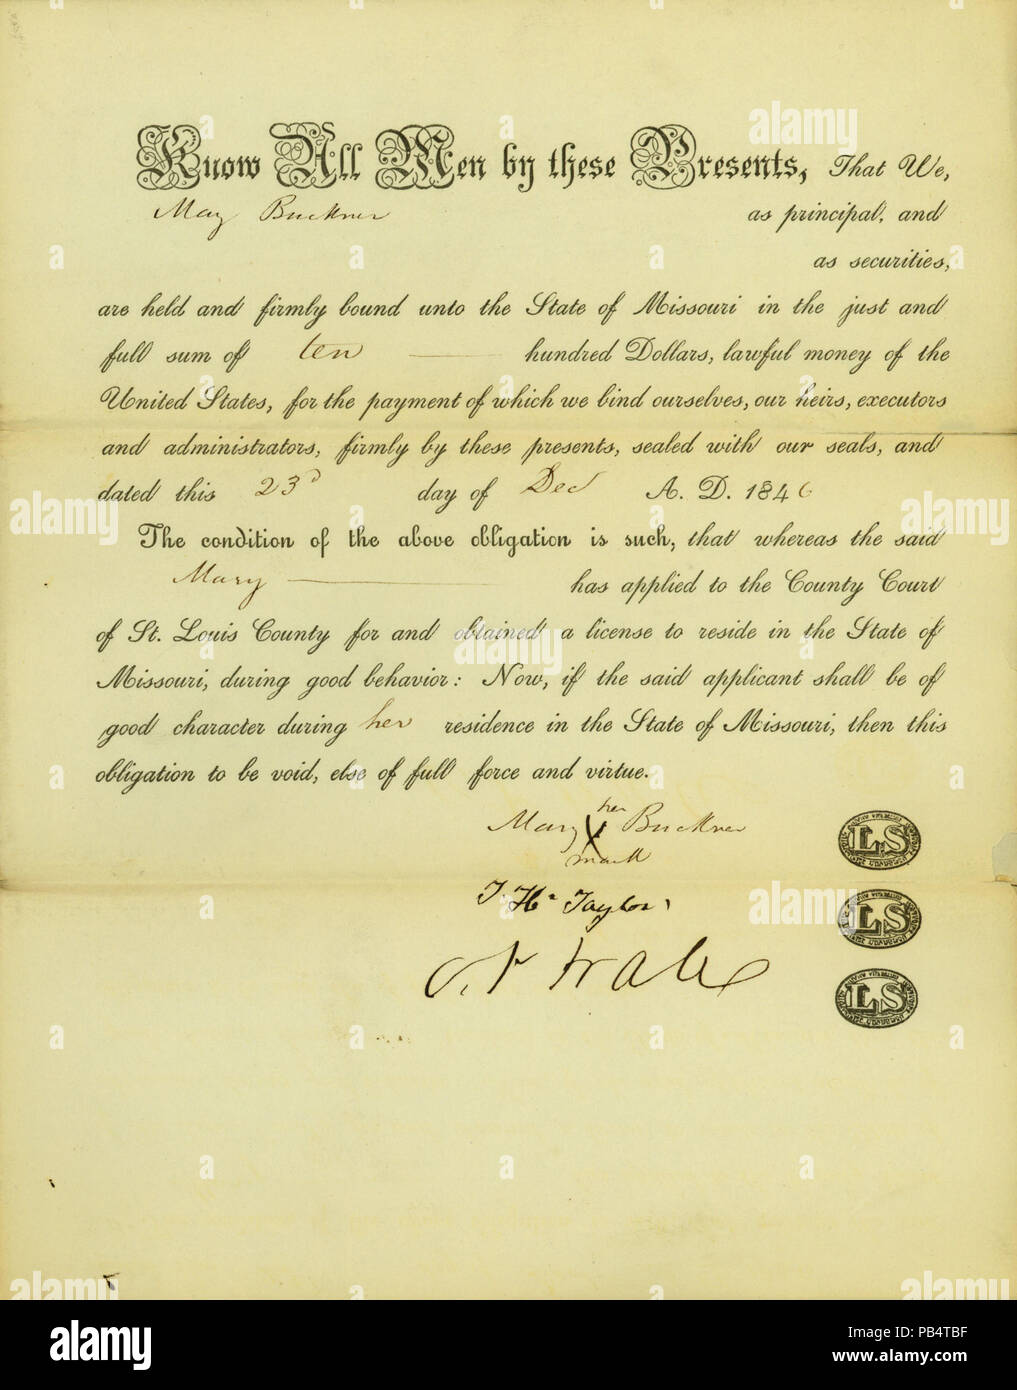 Know All Men by these Presents, That We,
Mary Buckner as principal, and
as securities,
are held and firmly bound unto the State of Missouri in the just and
full sum of ten hundred Dollars, lawful money of the
United States, for the payment of which we bind ourselves, our heirs, executors
and administrators, firmly by these presents, sealed with our seals, and
dated this 23d day of Dec A. D. 1846
The condition of the above obligation is such, that whereas the said
Mary has applied to the County Court
of St. Louis County for and obtained a license to reside in the State of
Missouri, during good behavior: Now, if the said applicant shall be of
good character during her residence in the State of Missouri, then this
obligation to be void, else of full force and virtue.
her
Mary X Buckner LS
mark
T. H. Taylor LS
LS
alamy
PB4TBF
www.alamy.com